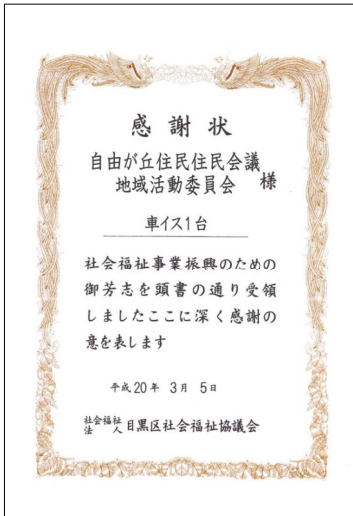 感謝状
自由が丘住民住民会議
地域活動委員会 様
車イス1台
社会福祉事業振興のための
御芳志を頭書の通り受領
しましたここに深く感謝の
意を表します
平成20年 3月 5日
社会福祉法人 目黒区社会福祉協議会